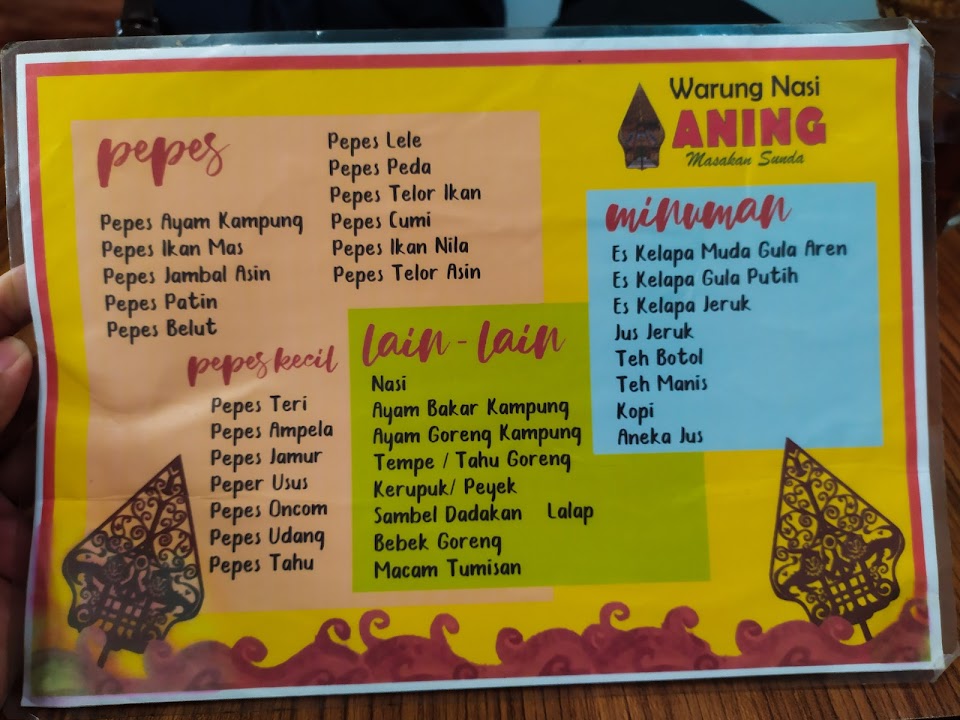 Warung Nasi
ANING
Masakan Sunda
pepes
Pepes Ayam Kampung
Pepes Ikan Mas
Pepes Jambal Asin
Pepes Patin
Pepes Belut
Pepes Lele
Pepes Peda
Pepes Telor Ikan
Pepes Cumi
Pepes Ikan Nila
Pepes Telor Asin
pepes kecil
Pepes Teri
Pepes Ampela
Pepes Jamur
Peper Usus
Pepes Oncom
Pepes Udang
Pepes Tahu
lain - lain
Nasi
Ayam Bakar Kampung
Ayam Goreng Kampung
Tempe / Tahu Goreng
Kerupuk/ Peyek
Sambel Dadakan Lalap
Bebek Goreng
Macam Tumisan
minuman
Es Kelapa Muda Gula Aren
Es Kelapa Gula Putih
Es Kelapa Jeruk
Jus Jeruk
Teh Botol
Teh Manis
Kopi
Aneka Jus